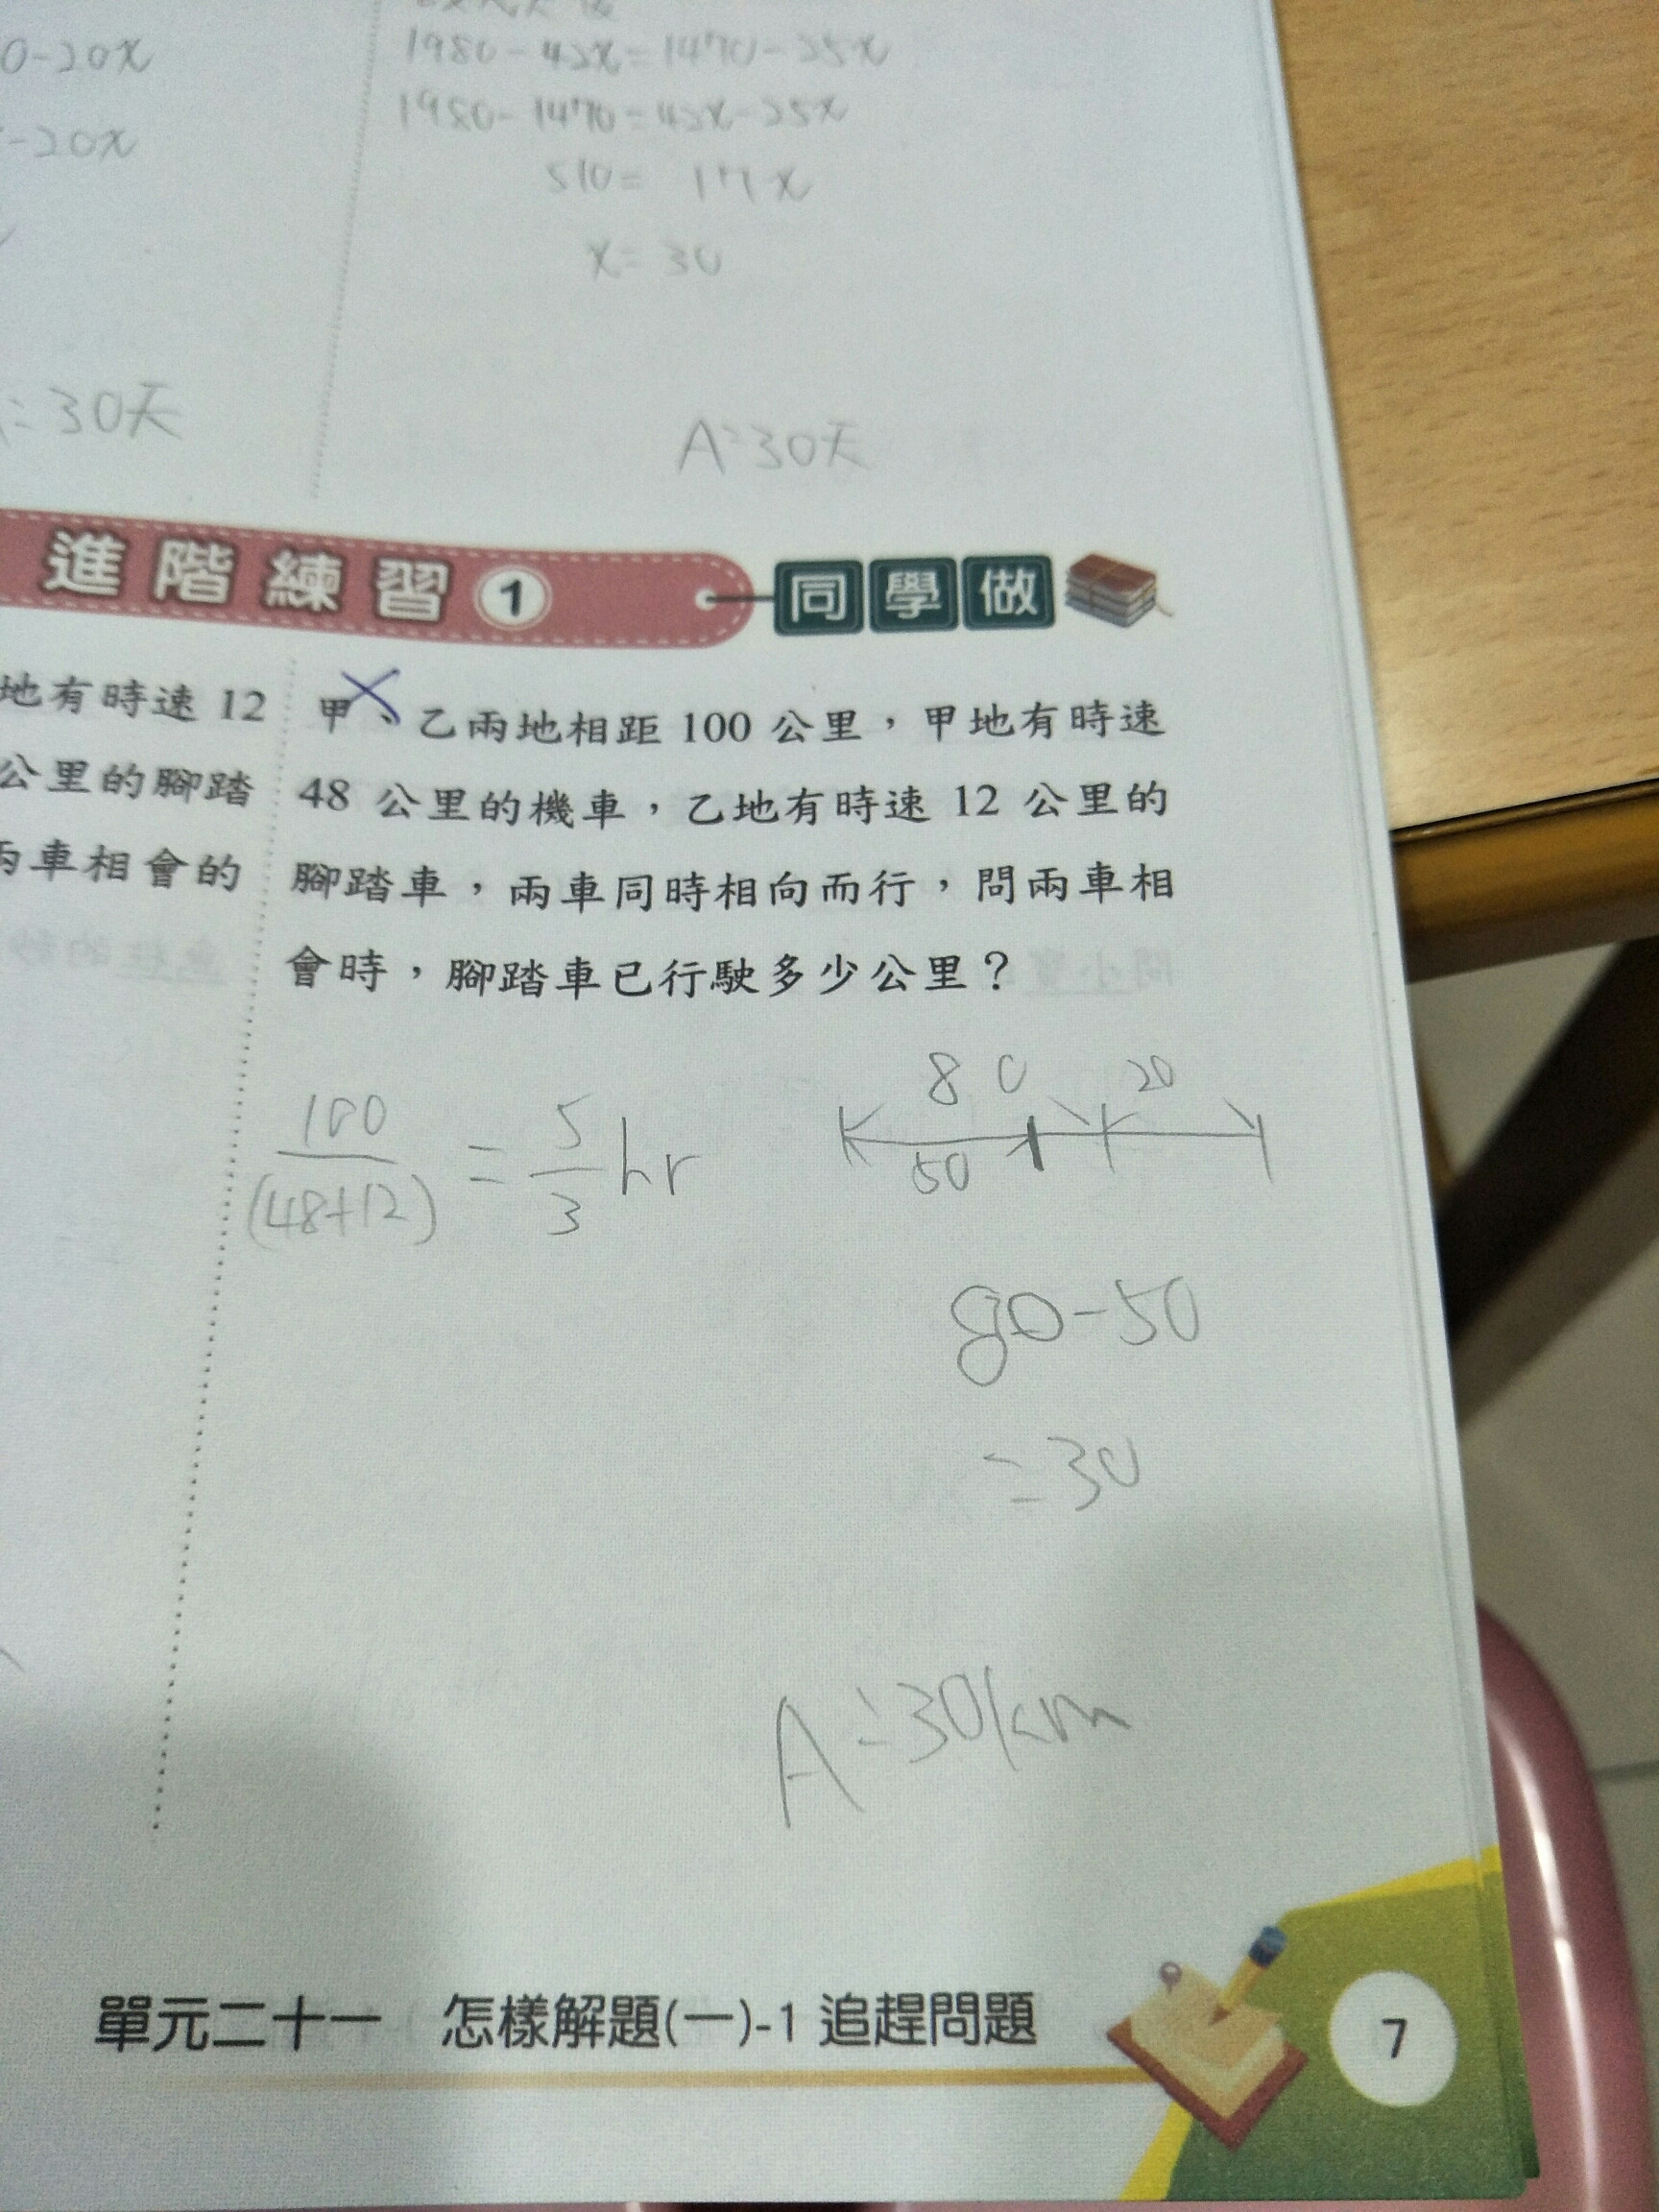 0-20x
1980-42x=1470-25x
-20x
1980-1470=42x-25x
510= 17x
x=30
=30天
A=30天
進階練習1 同學做
地有時速 12
公里的腳踏
車相會的
甲、乙兩地相距 100 公里，甲地有時速
48 公里的機車，乙地有時速 12 公里的
腳踏車，兩車同時相向而行，問兩車相
會時，腳踏車已行駛多少公里？
100/(48+12) = 5/3 hr
80 20
50
80-50
=30
A=30km
單元二十一 怎樣解題(一)-1 追趕問題
7